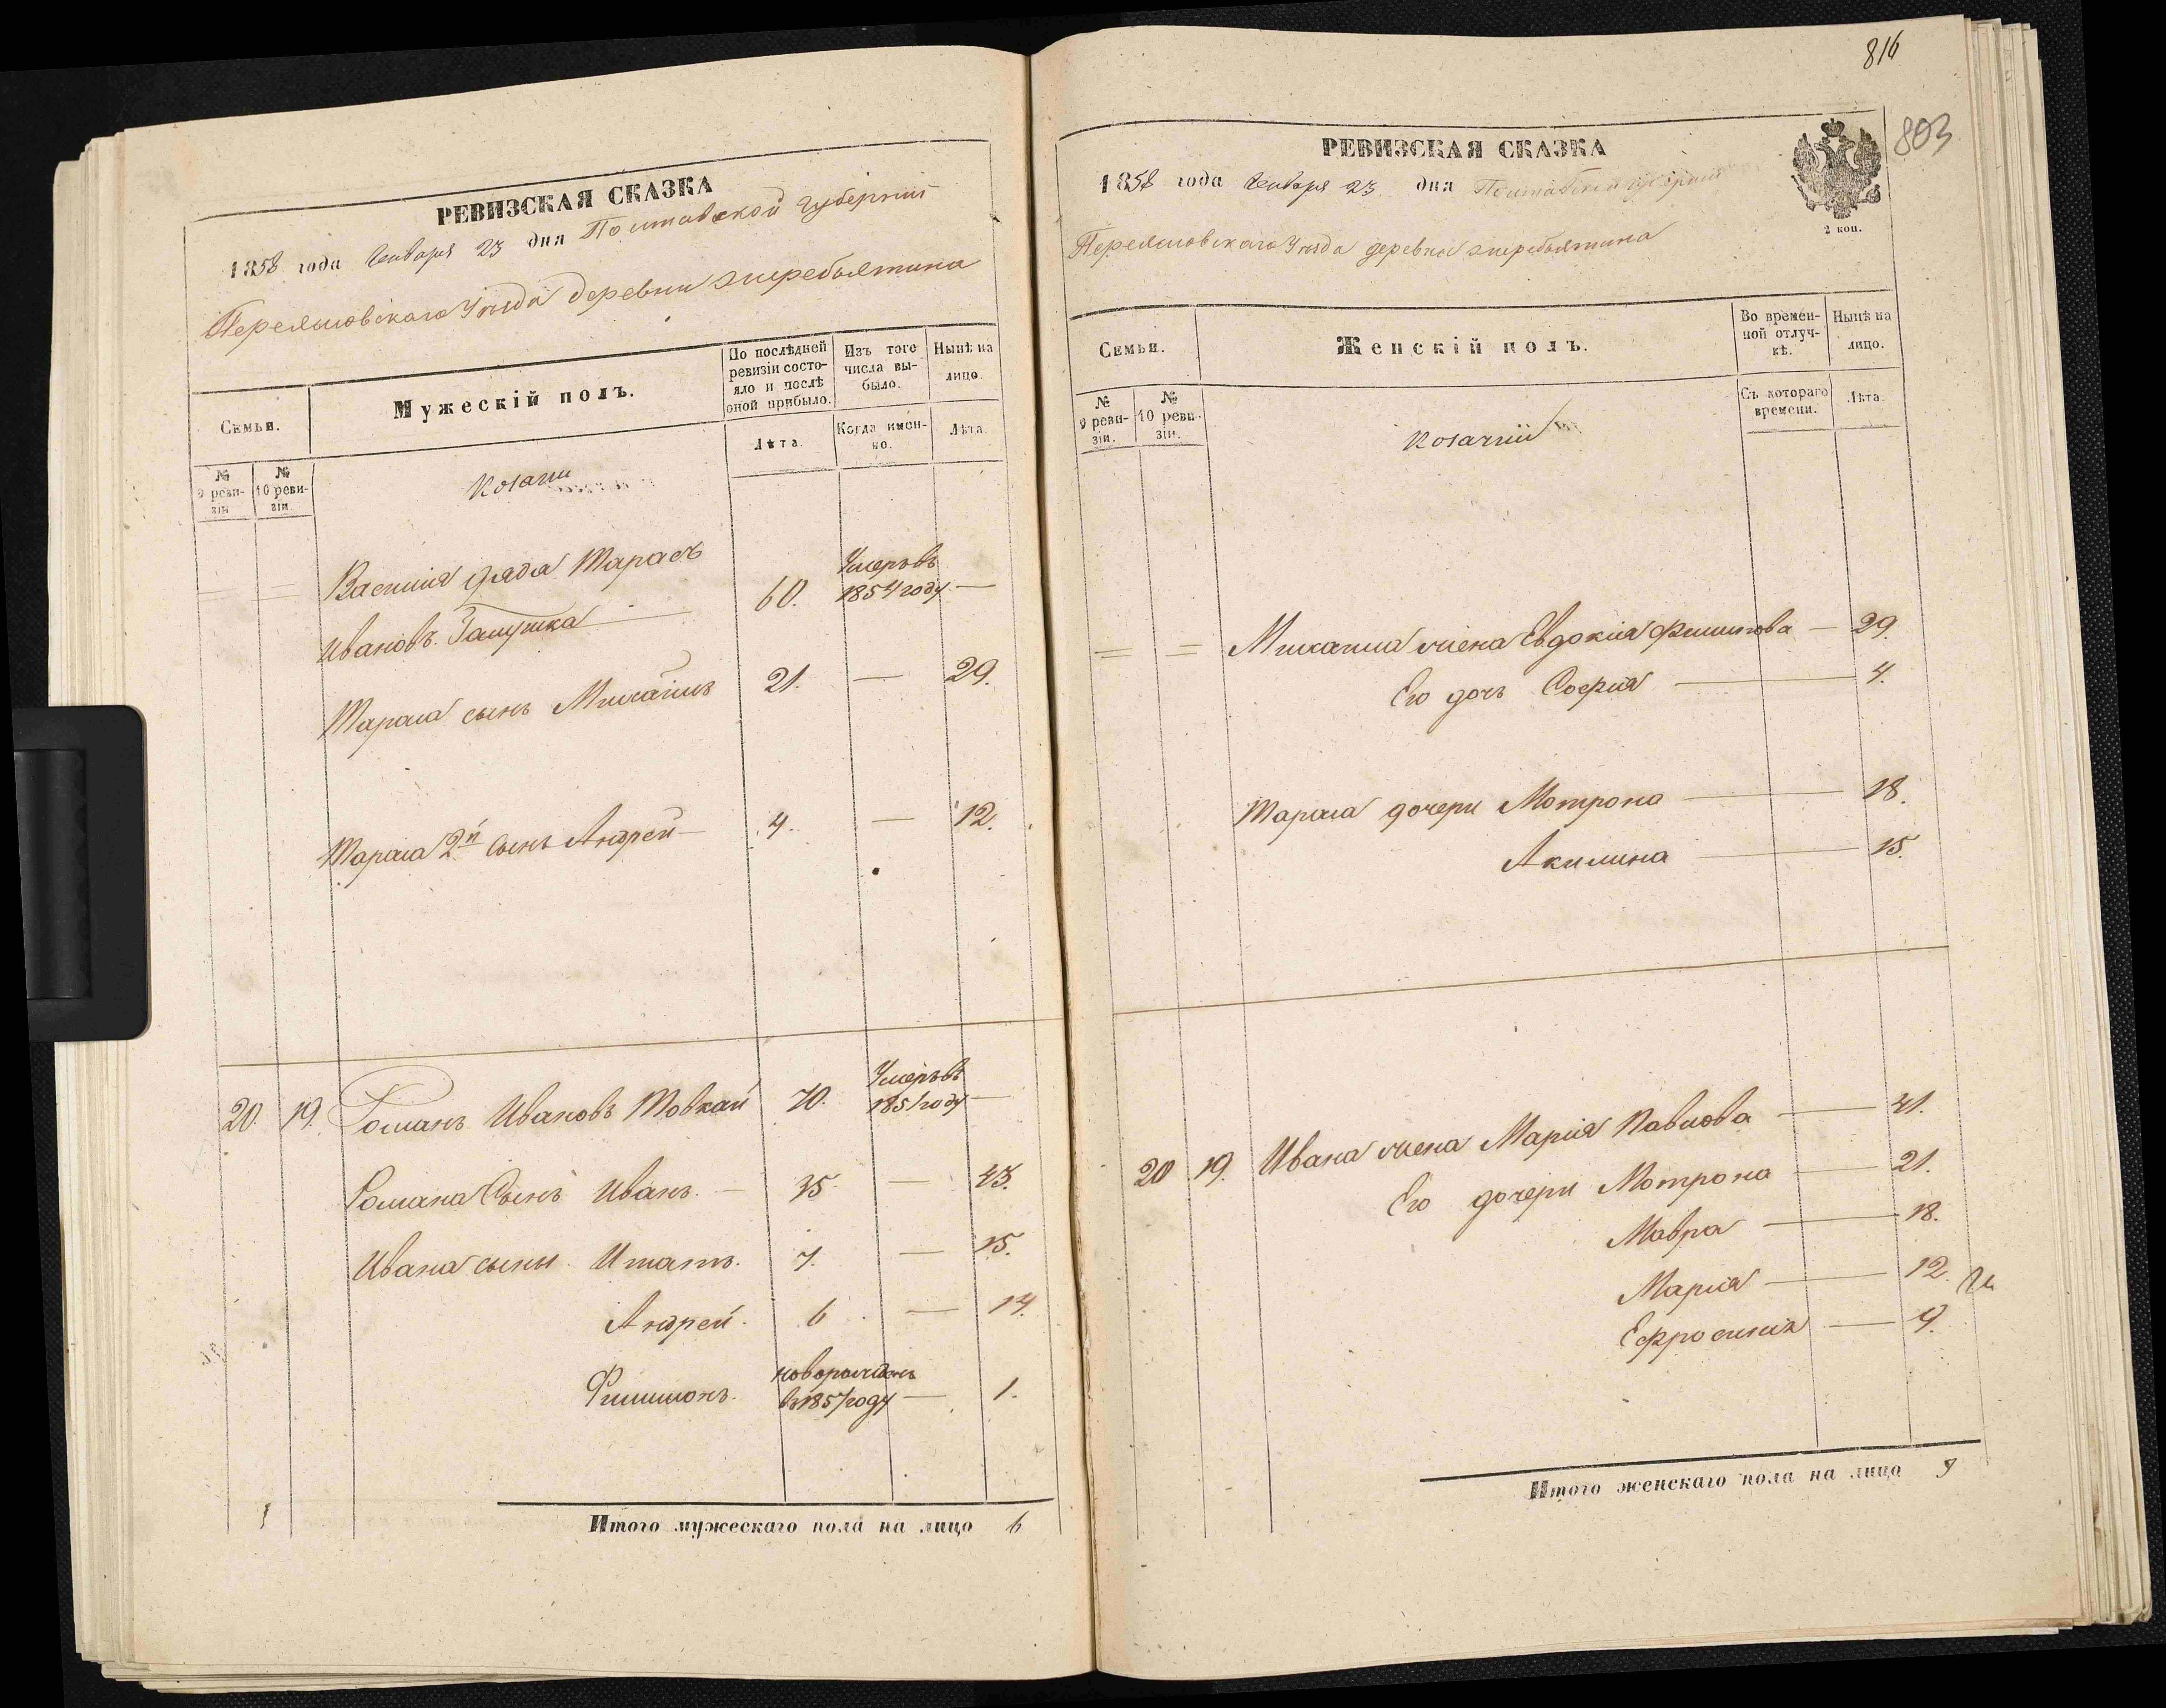 РЕВИЗСКАЯ СКАЗКА
1858 года Генваря 23 дня Полтавской губернии
Переяславскаго Уезда деревни Жеребятина
Семьи.
Мужескій полъ.
По послѣдней ревизіи состояло и послѣ оной прибыло.
Изъ того числа выбыло.
Нынѣ на лицо.
Лѣта.
Когда именно.
Лѣта.
№ 9 ревизіи.
№ 10 ревизіи.
Козачьи
= = Василия дядя Тарасъ
Ивановъ Галушка 60. Умеръ въ 1854 году —
Тараса сынъ Михаилъ 21. — 29.
Тараса 2й сынъ Андрей — 4. — 12.
20. 19. Романъ Ивановъ Товкай 70. Умеръ въ 1851 году —
Романа Сынъ Иванъ. — 35 — 43.
Ивана сыны Игнатъ. 7. — 15.
Андрей. 6 — 14.
Филимонъ. новорожденъ въ 1857 году — 1.
Итого мужескаго пола на лицо 6
816
803
РЕВИЗСКАЯ СКАЗКА
1858 года Генваря 23 дня Полтавской губернии
2 коп.
Переяславскаго Уезда деревни Жеребятина
Семьи.
Женскій полъ.
Во временной отлучкѣ.
Нынѣ на лицо.
№ 9 ревизіи.
№ 10 ревизіи.
Съ котораго времени.
Лѣта.
Козачьи
= = Михаила жена Евдокия Филипова — 29.
Его дочь София — 4.
Тараса дочери Мотрона — 18.
Акилина — 15.
20 19. Ивана жена Мария Павлова — 41.
Его дочери Мотрона — 21.
Мавра — 18.
Мария — 12.
Ефросиния — 9.
Итого женскаго пола на лицо 9